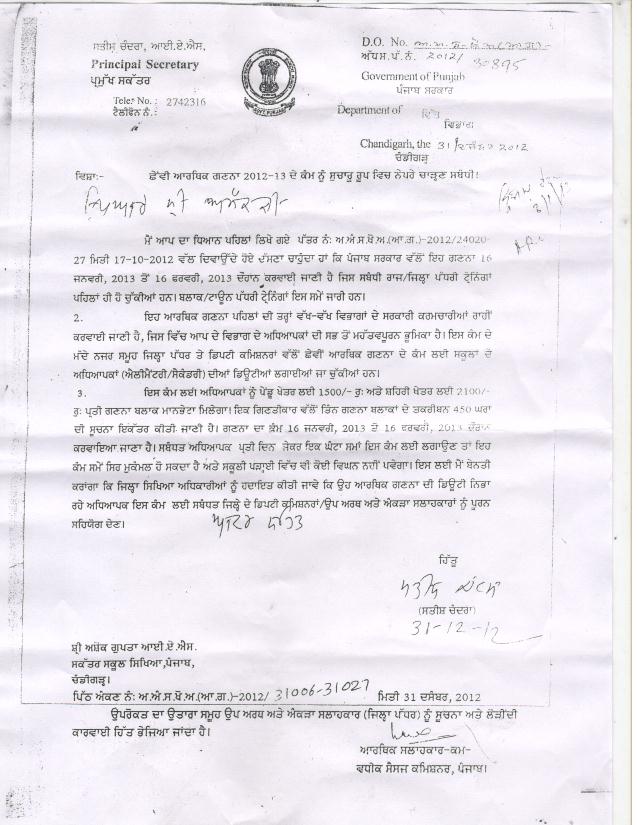 ਸਤੀਸ਼ ਚੰਦਰਾ, ਆਈ.ਏ.ਐਸ.
Principal Secretary
ਪ੍ਰਮੁੱਖ ਸਕੱਤਰ
Teles No. : 2742316
ਟੈਲੀਫੋਨ ਨੰ.:
D.O. No.
ਅੱਧਸ.ਪੱ.ਨੰ. 2012/30895
Government of Punjab
ਪੰਜਾਬ ਸਰਕਾਰ
Department of ਵਿੱਤ
ਵਿਭਾਗ:
Chandigarh, the 31 ਦਸੰਬਰ 2012
ਚੰਡੀਗੜ੍ਹ
ਵਿਸ਼ਾ:- ਛੇਂਵੀ ਆਰਥਿਕ ਗਣਨਾ 2012-13 ਦੇ ਕੰਮ ਨੂੰ ਸੁਚਾਰੂ ਰੂਪ ਵਿਚ ਨੇਪਰੇ ਚਾੜ੍ਹਣ ਸਬੰਧੀ।
ਮੈਂ ਆਪ ਦਾ ਧਿਆਨ ਪਹਿਲਾਂ ਲਿਖੇ ਗਏ ਪੱਤਰ ਨੰ: ਅ.ਅੰ.ਸ.ਖੋ.ਅ.(ਆ.ਗ.)-2012/24020-
27 ਮਿਤੀ 17-10-2012 ਵੱਲ ਦਿਵਾਉਂਦੇ ਹੋਏ ਦੱਸਣਾ ਚਾਹੁੰਦਾ ਹਾਂ ਕਿ ਪੰਜਾਬ ਸਰਕਾਰ ਵੱਲੋਂ ਇਹ ਗਣਨਾ 16
ਜਨਵਰੀ, 2013 ਤੋਂ 16 ਫਰਵਰੀ, 2013 ਦੌਰਾਨ ਕਰਵਾਈ ਜਾਣੀ ਹੈ ਜਿਸ ਸਬੰਧੀ ਰਾਜ/ਜਿਲ੍ਹਾ ਪੱਧਰੀ ਟ੍ਰੇਨਿੰਗਾਂ
ਪਹਿਲਾਂ ਹੀ ਹੋ ਚੁੱਕੀਆਂ ਹਨ। ਬਲਾਕ/ਟਾਊਨ ਪੱਧਰੀ ਟ੍ਰੇਨਿੰਗਾਂ ਇਸ ਸਮੇਂ ਜਾਰੀ ਹਨ।
2. ਇਹ ਆਰਥਿਕ ਗਣਨਾ ਪਹਿਲਾਂ ਦੀ ਤਰ੍ਹਾਂ ਵੱਖ-ਵੱਖ ਵਿਭਾਗਾਂ ਦੇ ਸਰਕਾਰੀ ਕਰਮਚਾਰੀਆਂ ਰਾਹੀਂ
ਕਰਵਾਈ ਜਾਣੀ ਹੈ, ਜਿਸ ਵਿੱਚ ਆਪ ਦੇ ਵਿਭਾਗ ਦੇ ਅਧਿਆਪਕਾਂ ਦੀ ਸਭ ਤੋਂ ਮਹੱਤਵਪੂਰਨ ਭੂਮਿਕਾ ਹੈ। ਇਸ ਕੰਮ ਦੇ
ਮੱਦੇ ਨਜਰ ਸਮੂਹ ਜਿਲ੍ਹਾ ਪੱਧਰ ਤੇ ਡਿਪਟੀ ਕਮਿਸ਼ਨਰਾਂ ਵੱਲੋਂ ਛੇਵੀਂ ਆਰਥਿਕ ਗਣਨਾ ਦੇ ਕੰਮ ਲਈ ਸਕੂਲਾਂ ਦੇ
ਅਧਿਆਪਕਾਂ (ਐਲੀਮੈਂਟਰੀ/ਸੈਕੰਡਰੀ) ਦੀਆਂ ਡਿਊਟੀਆਂ ਲਗਾਈਆਂ ਜਾ ਚੁੱਕੀਆਂ ਹਨ।
3. ਇਸ ਕੰਮ ਲਈ ਅਧਿਆਪਕਾਂ ਨੂੰ ਪੇਂਡੂ ਖੇਤਰ ਲਈ 1500/- ਰੁ: ਅਤੇ ਸ਼ਹਿਰੀ ਖੇਤਰ ਲਈ 2100/-
ਰੁ: ਪ੍ਰਤੀ ਗਣਨਾ ਬਲਾਕ ਮਾਨਭੇਟਾ ਮਿਲੇਗਾ। ਇਕ ਗਿਣਤੀਕਾਰ ਵੱਲੋਂ ਤਿੰਨ ਗਣਨਾ ਬਲਾਕਾਂ ਦੇ ਤਕਰੀਬਨ 450 ਘਰਾਂ
ਦੀ ਸੂਚਨਾ ਇਕੱਤਰ ਕੀਤੀ ਜਾਣੀ ਹੈ। ਗਣਨਾ ਦਾ ਕੰਮ 16 ਜਨਵਰੀ, 2013 ਤੋਂ 16 ਫਰਵਰੀ, 2013 ਦੌਰਾਨ
ਕਰਵਾਇਆ ਜਾਣਾ ਹੈ। ਸਬੰਧਤ ਅਧਿਆਪਕ ਪ੍ਰਤੀ ਦਿਨ ਜੇਕਰ ਇਕ ਘੰਟਾ ਸਮਾਂ ਇਸ ਕੰਮ ਲਈ ਲਗਾਉਣ ਤਾਂ ਇਹ
ਕੰਮ ਸਮੇਂ ਸਿਰ ਮੁਕੰਮਲ ਹੋ ਸਕਦਾ ਹੈ ਅਤੇ ਸਕੂਲੀ ਪੜ੍ਹਾਈ ਵਿੱਚ ਵੀ ਕੋਈ ਵਿਘਨ ਨਹੀਂ ਪਵੇਗਾ। ਇਸ ਲਈ ਮੈਂ ਬੇਨਤੀ
ਕਰਾਂਗਾ ਕਿ ਜਿਲ੍ਹਾ ਸਿੱਖਿਆ ਅਧਿਕਾਰੀਆਂ ਨੂੰ ਹਦਾਇਤ ਕੀਤੀ ਜਾਵੇ ਕਿ ਉਹ ਆਰਥਿਕ ਗਣਨਾ ਦੀ ਡਿਊਟੀ ਨਿਭਾ
ਰਹੇ ਅਧਿਆਪਕ ਇਸ ਕੰਮ ਲਈ ਸਬੰਧਤ ਜਿਲ੍ਹੇ ਦੇ ਡਿਪਟੀ ਕਮਿਸ਼ਨਰਾਂ/ਉਪ ਅਰਥ ਅਤੇ ਅੰਕੜਾ ਸਲਾਹਕਾਰਾਂ ਨੂੰ ਪੂਰਨ
ਸਹਿਯੋਗ ਦੇਣ।
ਆਦਰ ਸਹਿਤ
ਹਿੱਤੂ
ਸਤੀਸ਼ ਚੰਦਰਾ
(ਸਤੀਸ਼ ਚੰਦਰਾ)
31-12-12
ਸ਼੍ਰੀ ਅਸ਼ੋਕ ਗੁਪਤਾ ਆਈ.ਏ.ਐਸ.
ਸਕੱਤਰ ਸਕੂਲ ਸਿਖਿਆ,ਪੰਜਾਬ,
ਚੰਡੀਗੜ੍ਹ।
ਪਿੱਠ ਅੰਕਣ ਨੰ: ਅ.ਅੰ.ਸ.ਖੋ.ਅ.(ਆ.ਗ.)-2012/ 31006-31027 ਮਿਤੀ 31 ਦਸੰਬਰ, 2012
ਉਪਰੋਕਤ ਦਾ ਉਤਾਰਾ ਸਮੂਹ ਉਪ ਅਰਥ ਅਤੇ ਅੰਕੜਾ ਸਲਾਹਕਾਰ (ਜਿਲ੍ਹਾ ਪੱਧਰ) ਨੂੰ ਸੂਚਨਾ ਅਤੇ ਲੋੜੀਂਦੀ
ਕਾਰਵਾਈ ਹਿੱਤ ਭੇਜਿਆ ਜਾਂਦਾ ਹੈ।
ਆਰਥਿਕ ਸਲਾਹਕਾਰ-ਕਮ-
ਵਧੀਕ ਸੈਂਸਜ ਕਮਿਸ਼ਨਰ, ਪੰਜਾਬ।